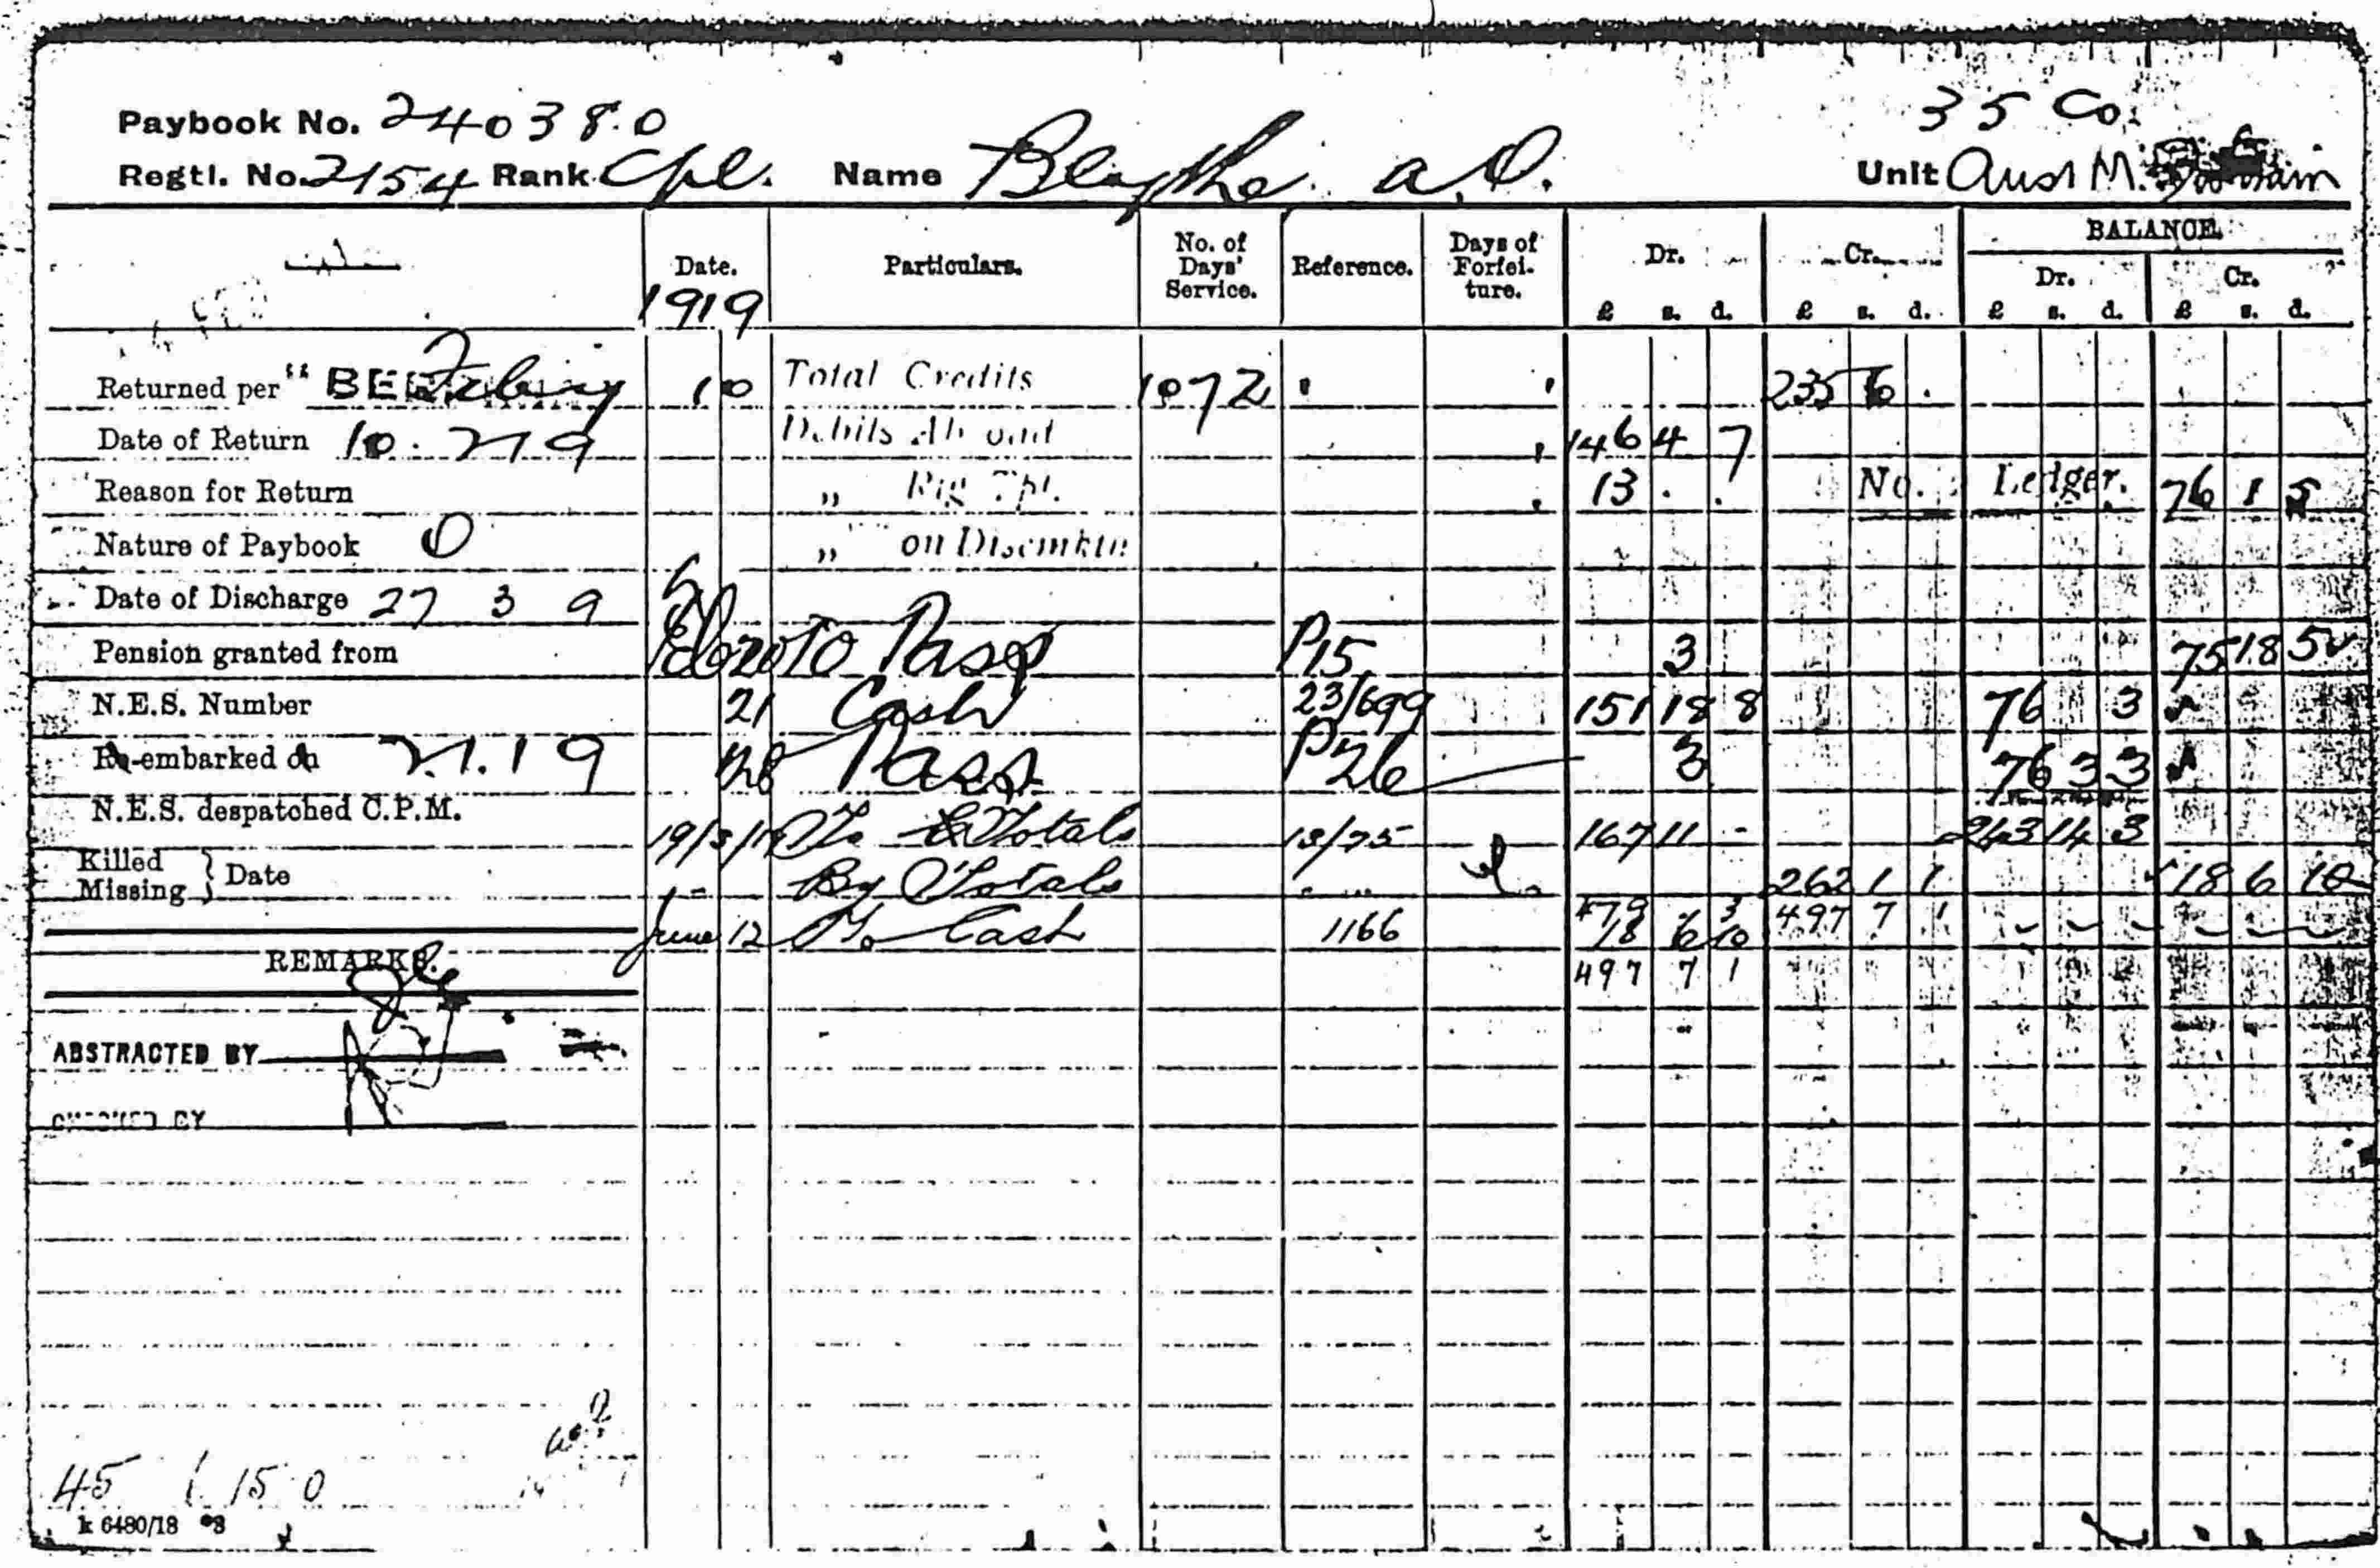 35 Co.
Paybook No. 240380
Regtl. No. 2154 Rank Cpl. Name Blythe. A.O. Unit Aust M.
BALANCE.
Date. Particulars. No. of Days' Service. Reference. Days of Forfei-ture. Dr. Cr. Dr. Cr.
1919 £ s. d. £ s. d. £ s. d. £ s. d.
Returned per " 10 Total Credits 1072 235 6 .
Date of Return 10.2.19 Debits Abroad 146 4 7
Reason for Return „ 13 . . No. Ledger. 76 1 5
Nature of Paybook O „ on
Date of Discharge 27 3 9
Pension granted from To Pass P15 3 75 18 5
N.E.S. Number 21 Cash 23/699 151 18 8 76 3
Re-embarked on 2.1.19 28 Pass P26 3 76 3 3
N.E.S. despatched C.P.M.
19/3/19 To Totals 13/75 167 11 - 243 14 3
Killed
Missing } Date
By Totals 262 1 1 18 6 10
479 3 497 7 1
June 12 To Cash 1166 18 6 10
REMARKS.
497 7 1
ABSTRACTED BY
CHECKED BY
45 1 15 0
k 6480/18